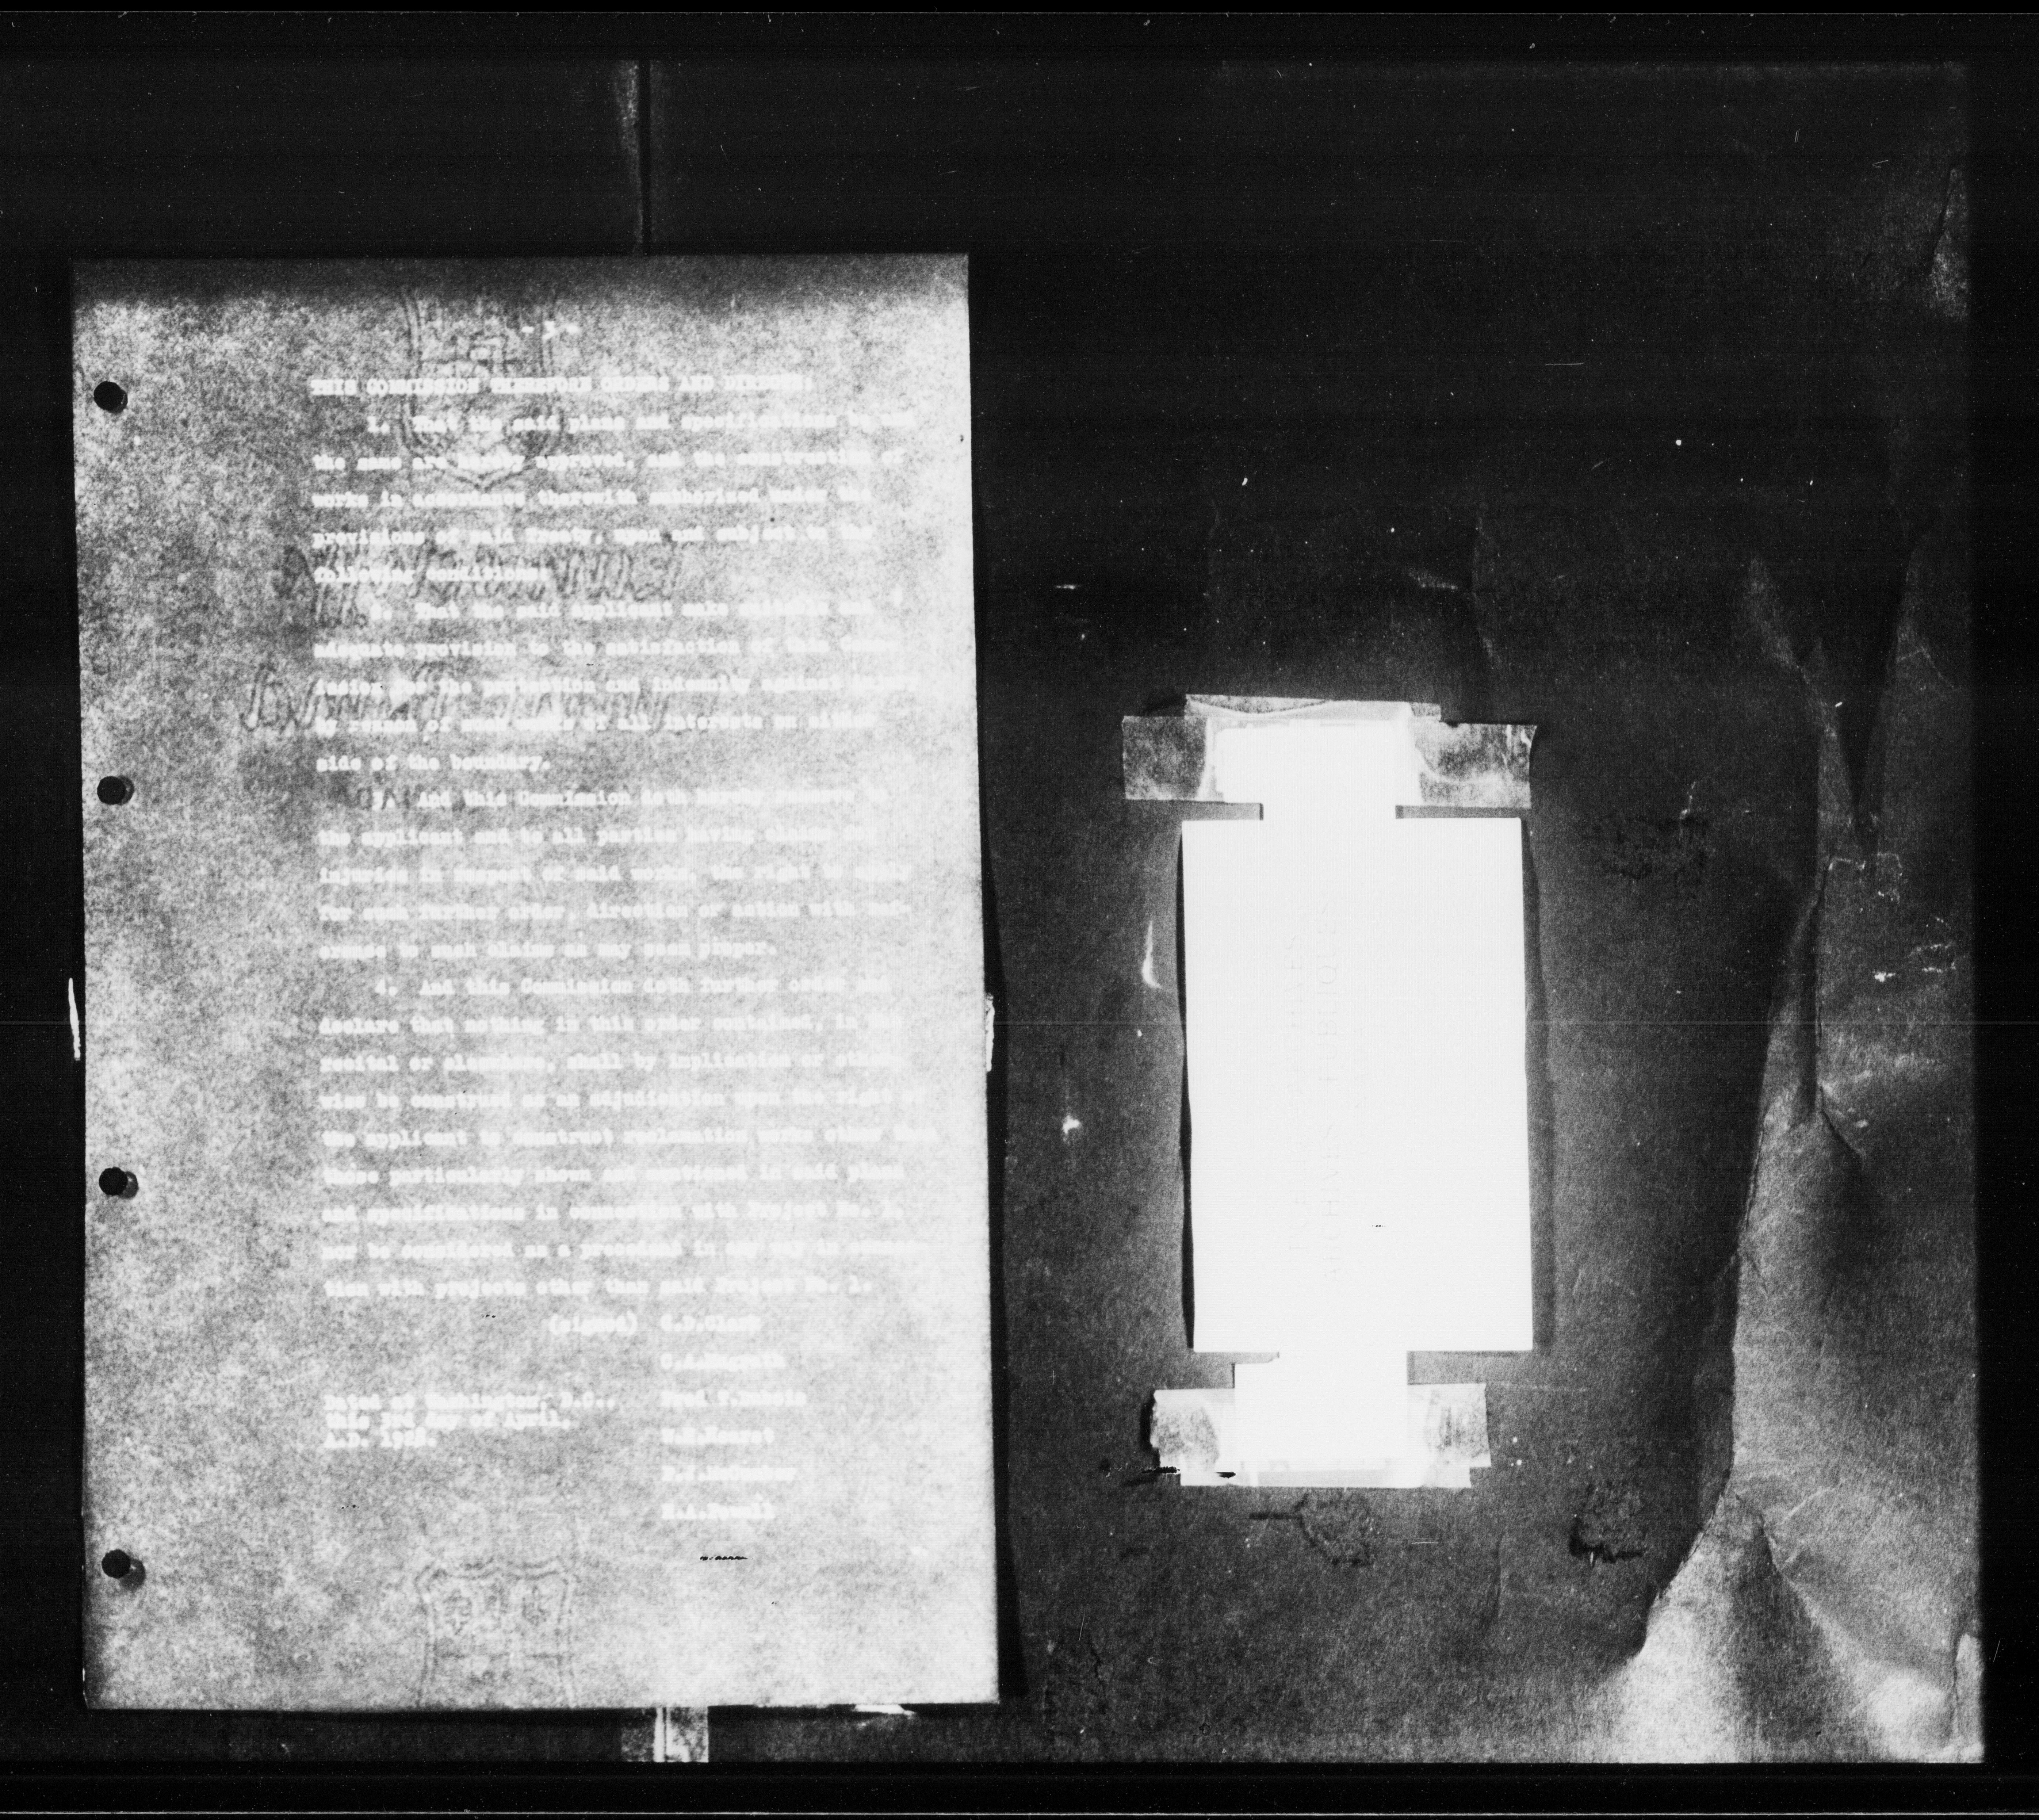 - 3 -
THIS COMMISSION THEREFORE ORDERS AND DIRECTS:
1. That the said plans and specifications be and
the same are hereby approved, and the construction of
works in accordance therewith authorized under the
provisions of said Treaty, upon and subject to the
following conditions:
That the said applicant make suitable and
adequate provision to the satisfaction of this
for the protection and indemnity against injury
by reason of said works of all interests on either
side of the boundary.
3. And this Commission doth hereby reserve to
the applicant and to all parties having claims of
injuries in respect of said works, the right to apply
for such further order, direction or action with ref-
erence to such claims as may seem proper.
4. And this Commission doth further order and
declare that nothing in this order contained, in
recital or elsewhere, shall by implication or other-
wise be construed as an adjudication upon the right of
the applicant to construct reclamation works other than
those particularly shown and mentioned in said plans
and specifications in connection with Project No. 1,
nor be considered as a precedent in any way in connec-
tion with projects other than said Project No. 1.
(signed) C.D.Clark
C.A.Magrath
Dated at Washington, D.C.,
this 3rd day of April,
A.D.
W.H.Hearst
H.A.Powell
PUBLIC ARCHIVES
ARCHIVES PUBLIQUES
CANADA